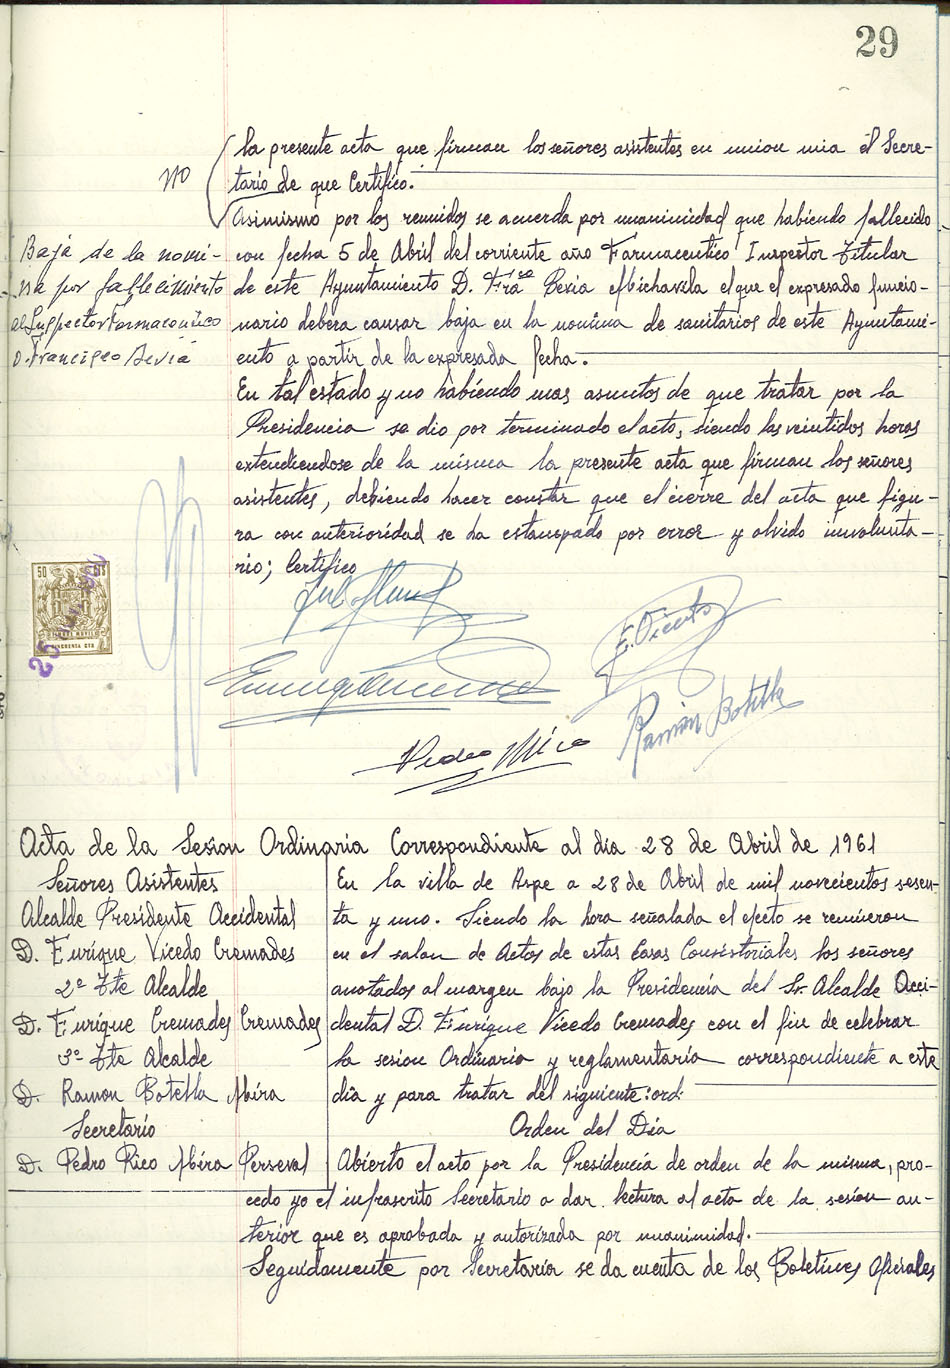 29
la presente acta que firman los señores asistentes en union mia el Secre-
tario de que Certifico.
no
Asimismo por los reunidos se acuerda por unanimidad que habiendo fallecido
Baja de la nomi-
na por fallecimiento
al Inspector Farmaceutico
D. Francisco Beviá
con fecha 5 de Abril del corriente año Farmaceutico Inspector Titular
de este Ayuntamiento D. Frᵃⁿᶜᵒ Bevia Abichavila el que el expresado funcio-
nario debera causar baja en la nomina de sanitarios de este Ayuntami-
ento a partir de la expresada fecha.
En tal estado y no habiendo mas asuntos de que tratar por la
Presidencia se dio por terminado el acto, siendo las veintidos horas
extendiendose de la misma la presente acta que firman los señores
asistentes, debiendo hacer constar que el cierre del acta que figu-
ra con anterioridad se ha estampado por error y olvido involunta-
rio; Certifico
50 CTS
E. Vicedo
Ramón Botella
Pedro Rico
Acta de la Sesion Ordinaria Correspondiente al dia 28 de Abril de 1961
Señores Asistentes
Alcalde Presidente Accidental
D. Enrique Vicedo Cremades
2º Tte Alcalde
D. Enrique Cremades Cremades
3º Tte Alcalde
D. Ramon Botella Mira
Secretario
D. Pedro Rico Mira Perseval
En la villa de Aspe a 28 de Abril de mil novecientos sesen-
ta y uno. Siendo la hora señalada el efecto se reunieron
en el salon de Actos de estas Casas Consistoriales los señores
anotados al margen bajo la Presidencia del Sr. Alcalde Acci-
dental D. Enrique Vicedo Cremades con el fin de celebrar
la sesion Ordinaria y reglamentaria correspondiente a este
dia y para tratar del siguiente: ord:
Orden del Dia
Abierto el acto por la Presidencia de orden de la misma, pro-
cedo yo el infrascrito Secretario a dar lectura al acta de la sesion an-
terior que es aprobada y autorizada por unanimidad.
Seguidamente por Secretaria se da cuenta de los Boletines Oficiales